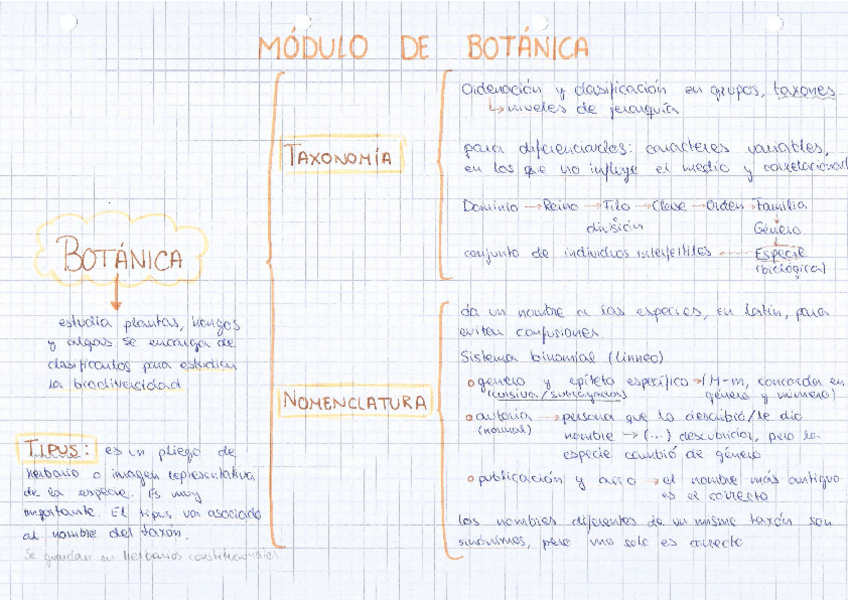 MÓDULO DE BOTÁNICA
BOTÁNICA
estudia plantas, hongos
y algas se encarga de
clasificarlos para estudiar
la biodiversidad
TIPUS: es un pliego de
herbario o imagen representativa
de la especie. Es muy
importante. El tipus va asociado
al nombre del taxón.
Se guardan en herbarios
TAXONOMÍA
Ordenación y clasificación en grupos, taxones
↳ niveles de jerarquía
para diferenciarlos: caracteres variables,
en los que no influye el medio y correlacionad
Dominio → Reino → Filo → Clase → Orden → Familia
división Género
conjunto de individuos interfértiles Especie
(biológica)
NOMENCLATURA
da un nombre a las especies, en latín, para
evitar confusiones.
Sistema binomial (Linneo)
género y epíteto específico → (M-m, concordar en
(cursiva/subrayados) género y número)
autoría → persona que lo describió/le dio
(normal) nombre → (...) descubridor, pero la
especie cambió de género
publicación y año → el nombre más antiguo
es el correcto
los nombres diferentes de un mismo taxón son
sinónimos, pero uno solo es correcto